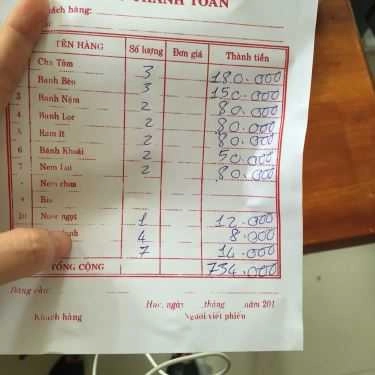 THANH TOÁN
Khách hàng:
TÊN HÀNG Số lượng Đơn giá Thành tiền
Chả Tôm 3 180.000
Bánh Bèo 3 150.000
3 Bánh Nậm 2 80.000
4 Bánh Lọc 2 80.000
5 Ram Ít 2 80.000
6 Bánh Khoái 2 50.000
7 Nem Lụi 2 80.000
Nem chua
Bia
10 Nước ngọt 1 12.000
4 8.000
7 14.000
TỔNG CỘNG 734.000
Bằng chữ:
Huế, ngày tháng năm 201
Khách hàng Người viết phiếu